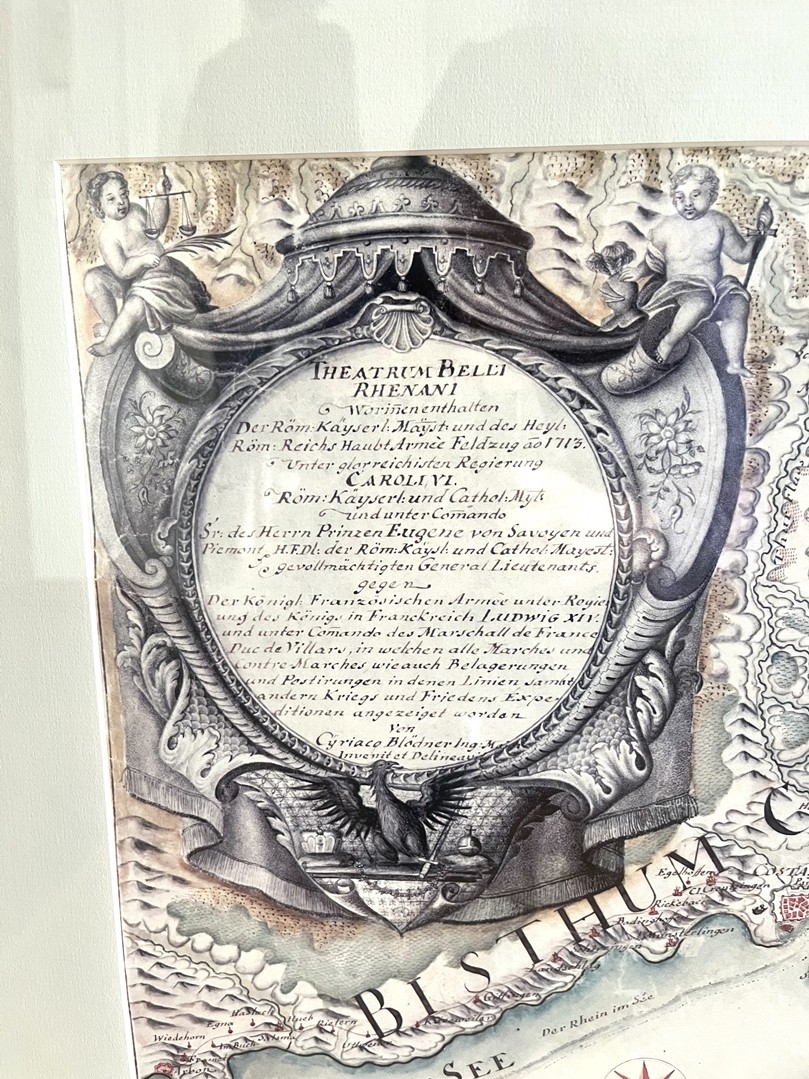 THEATRUM BELLI
RHENANI
Worin̄en enthalten
Der Röm: Kayserl: Mayst: und des Heyl:
Röm: Reichs Haubt Armèe Feldzug aō 1713.
Unter glorreichisten Regierung
CAROLI VI.
Röm: Käyserl: und Cathol: Myst:
und unter Com̄ando
Sr: des Herrn Prinzen Eugene von Savoyen und
Piemont, HÆDl: der Röm: Kaÿsl: und Cathol: Mayest:
gevollmächtigten General Lieutenants,
gegen
Der Königl: Französischen Armèe unter Regie
ung des Königs in Franckreich LUDWIG XIV.
und unter Comando des Marschall de France
Duc de Villars, in welchen alle Marches und
Contre Marches, wie auch Belagerungen
und Postirungen in denen Linien samt
andern Kriegs und Friedens Expe
ditionen angezeiget worden
Von
Cyriaco Blödner Ing. Ma
Invenit et Delineav
BISTHUM C
COSTA
Egelhoffen
Cl. Creutzlingen
Rickebach
Münsterlingen
Landschlag
Güttingen
Der Rhein im Sée
SEE
Haslach
Egna
Hueb
Rietern
Wiedehorn
Im Buch
Arbon